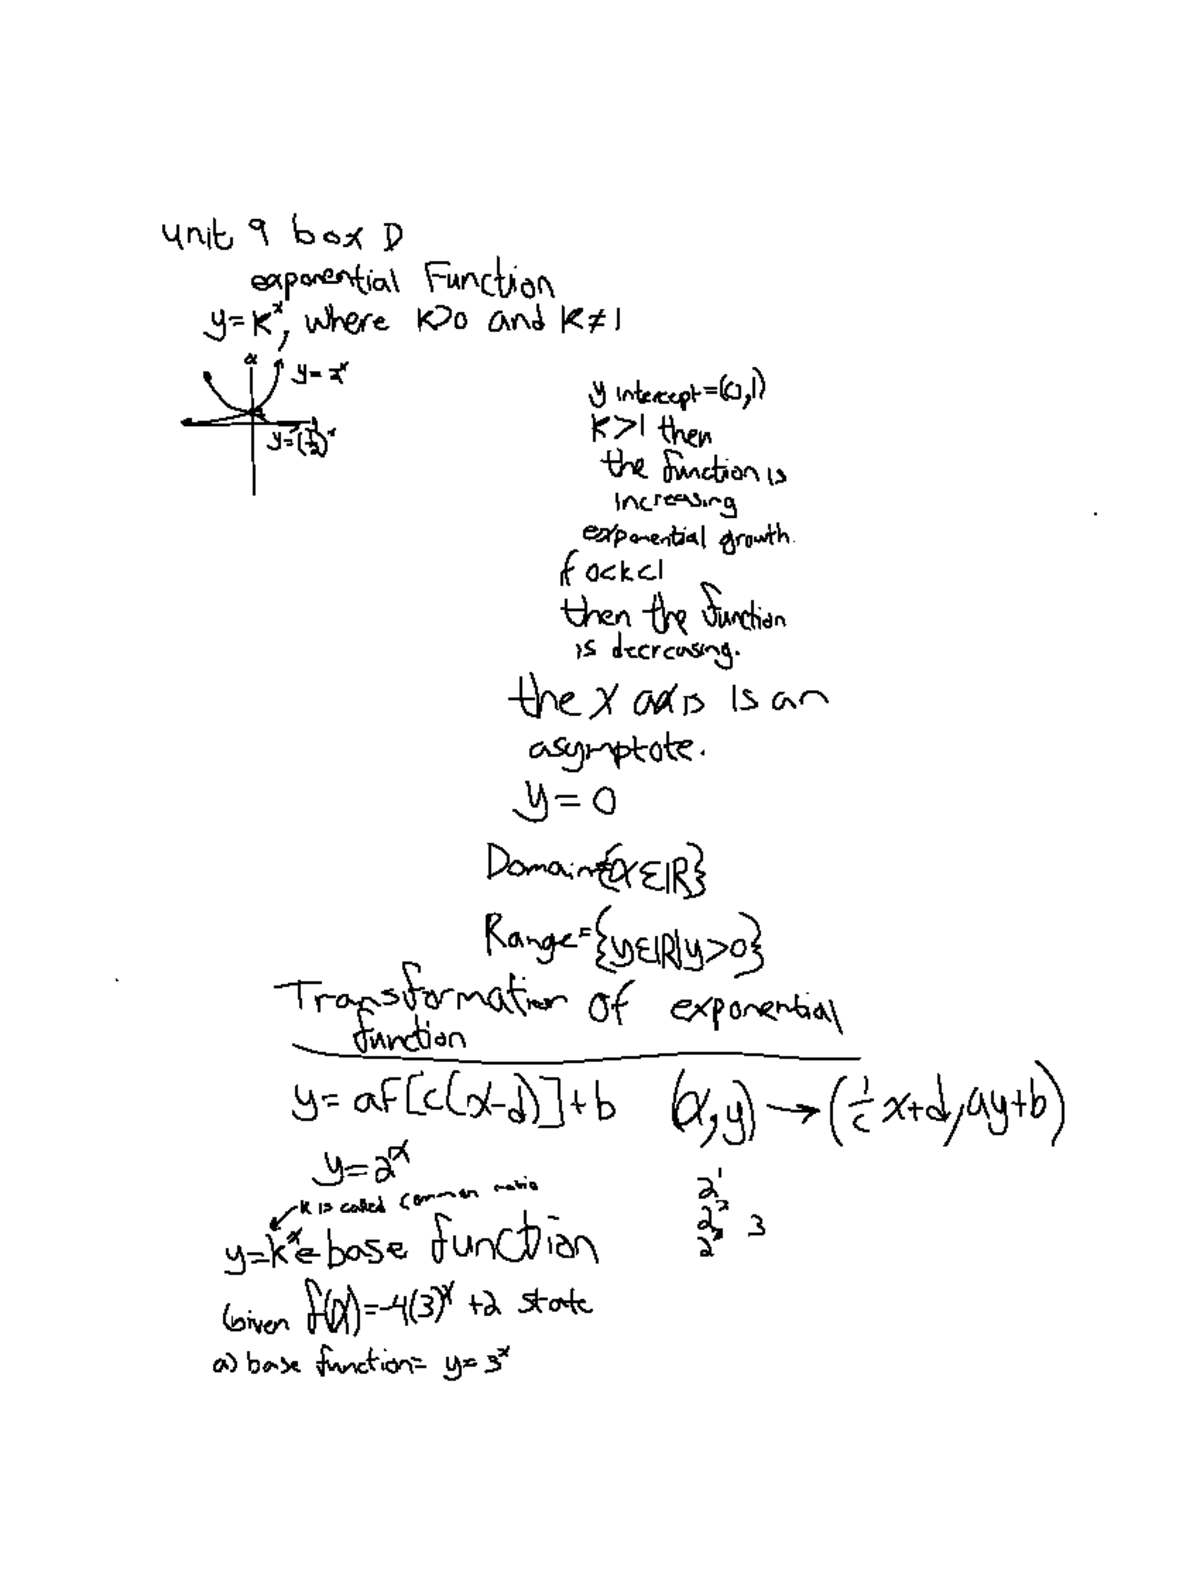 unit 9 box D
exponential Function
y=k^x, where k>0 and k≠1
x
y=2^x
y=(1/2)^x
y intercept=(0,1)
k>1 then
the function is
increasing
exponential growth.
f 0<k<1
then the function
is decreasing.
the x axis is an
asymptote.
y=0
Domain={x∈ℝ}
Range={y∈ℝ|y>0}
Transformation of exponential
function
y=af[c(x-d)]+b (x,y)→(1/c x+d,ay+b)
y=2^x
k is called common ratio
2^1
2^2 3
2^3
y=k^x← base function
Given f(x)=-4(3)^x +2 state
a) base function= y=3^x